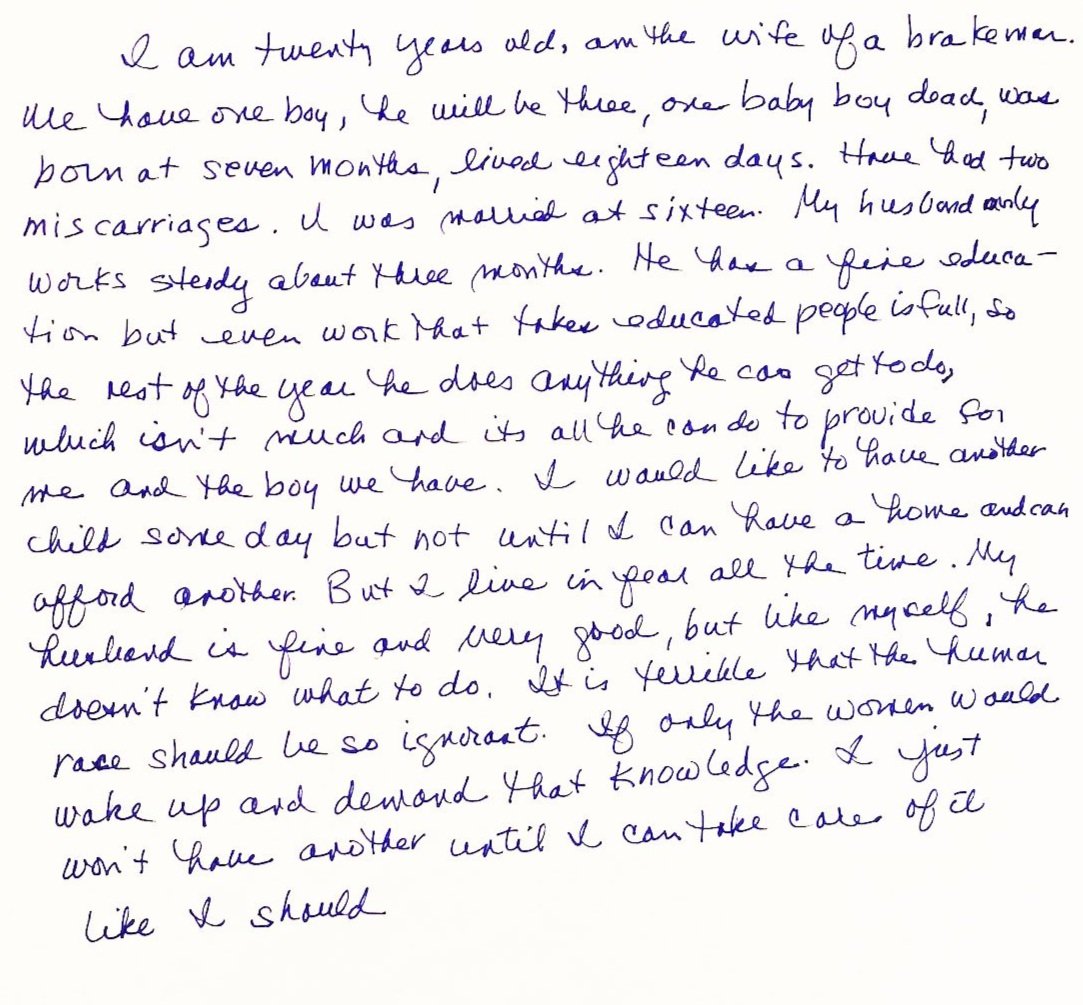 I am twenty years old, am the wife of a brakeman.
We have one boy, he will be three, one baby boy dead, was
born at seven months, lived eighteen days. Have had two
miscarriages. I was married at sixteen. My husband only
works steady about three months. He has a fine educa-
tion but even work that takes educated people is full, so
the rest of the year he does anything he can get to do,
which isn't much and its all he can do to provide for
me and the boy we have. I would like to have another
child some day but not until I can have a home and can
afford another. But I live in fear all the time. My
husband is fine and very good, but like myself, he
doesn't know what to do. It is terrible that the human
race should be so ignorant. If only the women would
wake up and demand that knowledge. I just
won't have another until I can take care of it
like I should